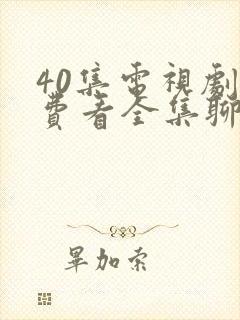 40集電視劇
費看全集聊
畢加索